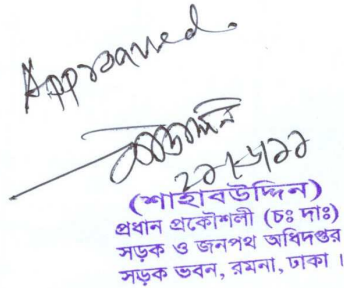 Approved.
(শাহাবউদ্দিন)
প্রধান প্রকৌশলী (চঃ দাঃ)
সড়ক ও জনপথ অধিদপ্তর
সড়ক ভবন, রমনা, ঢাকা ।